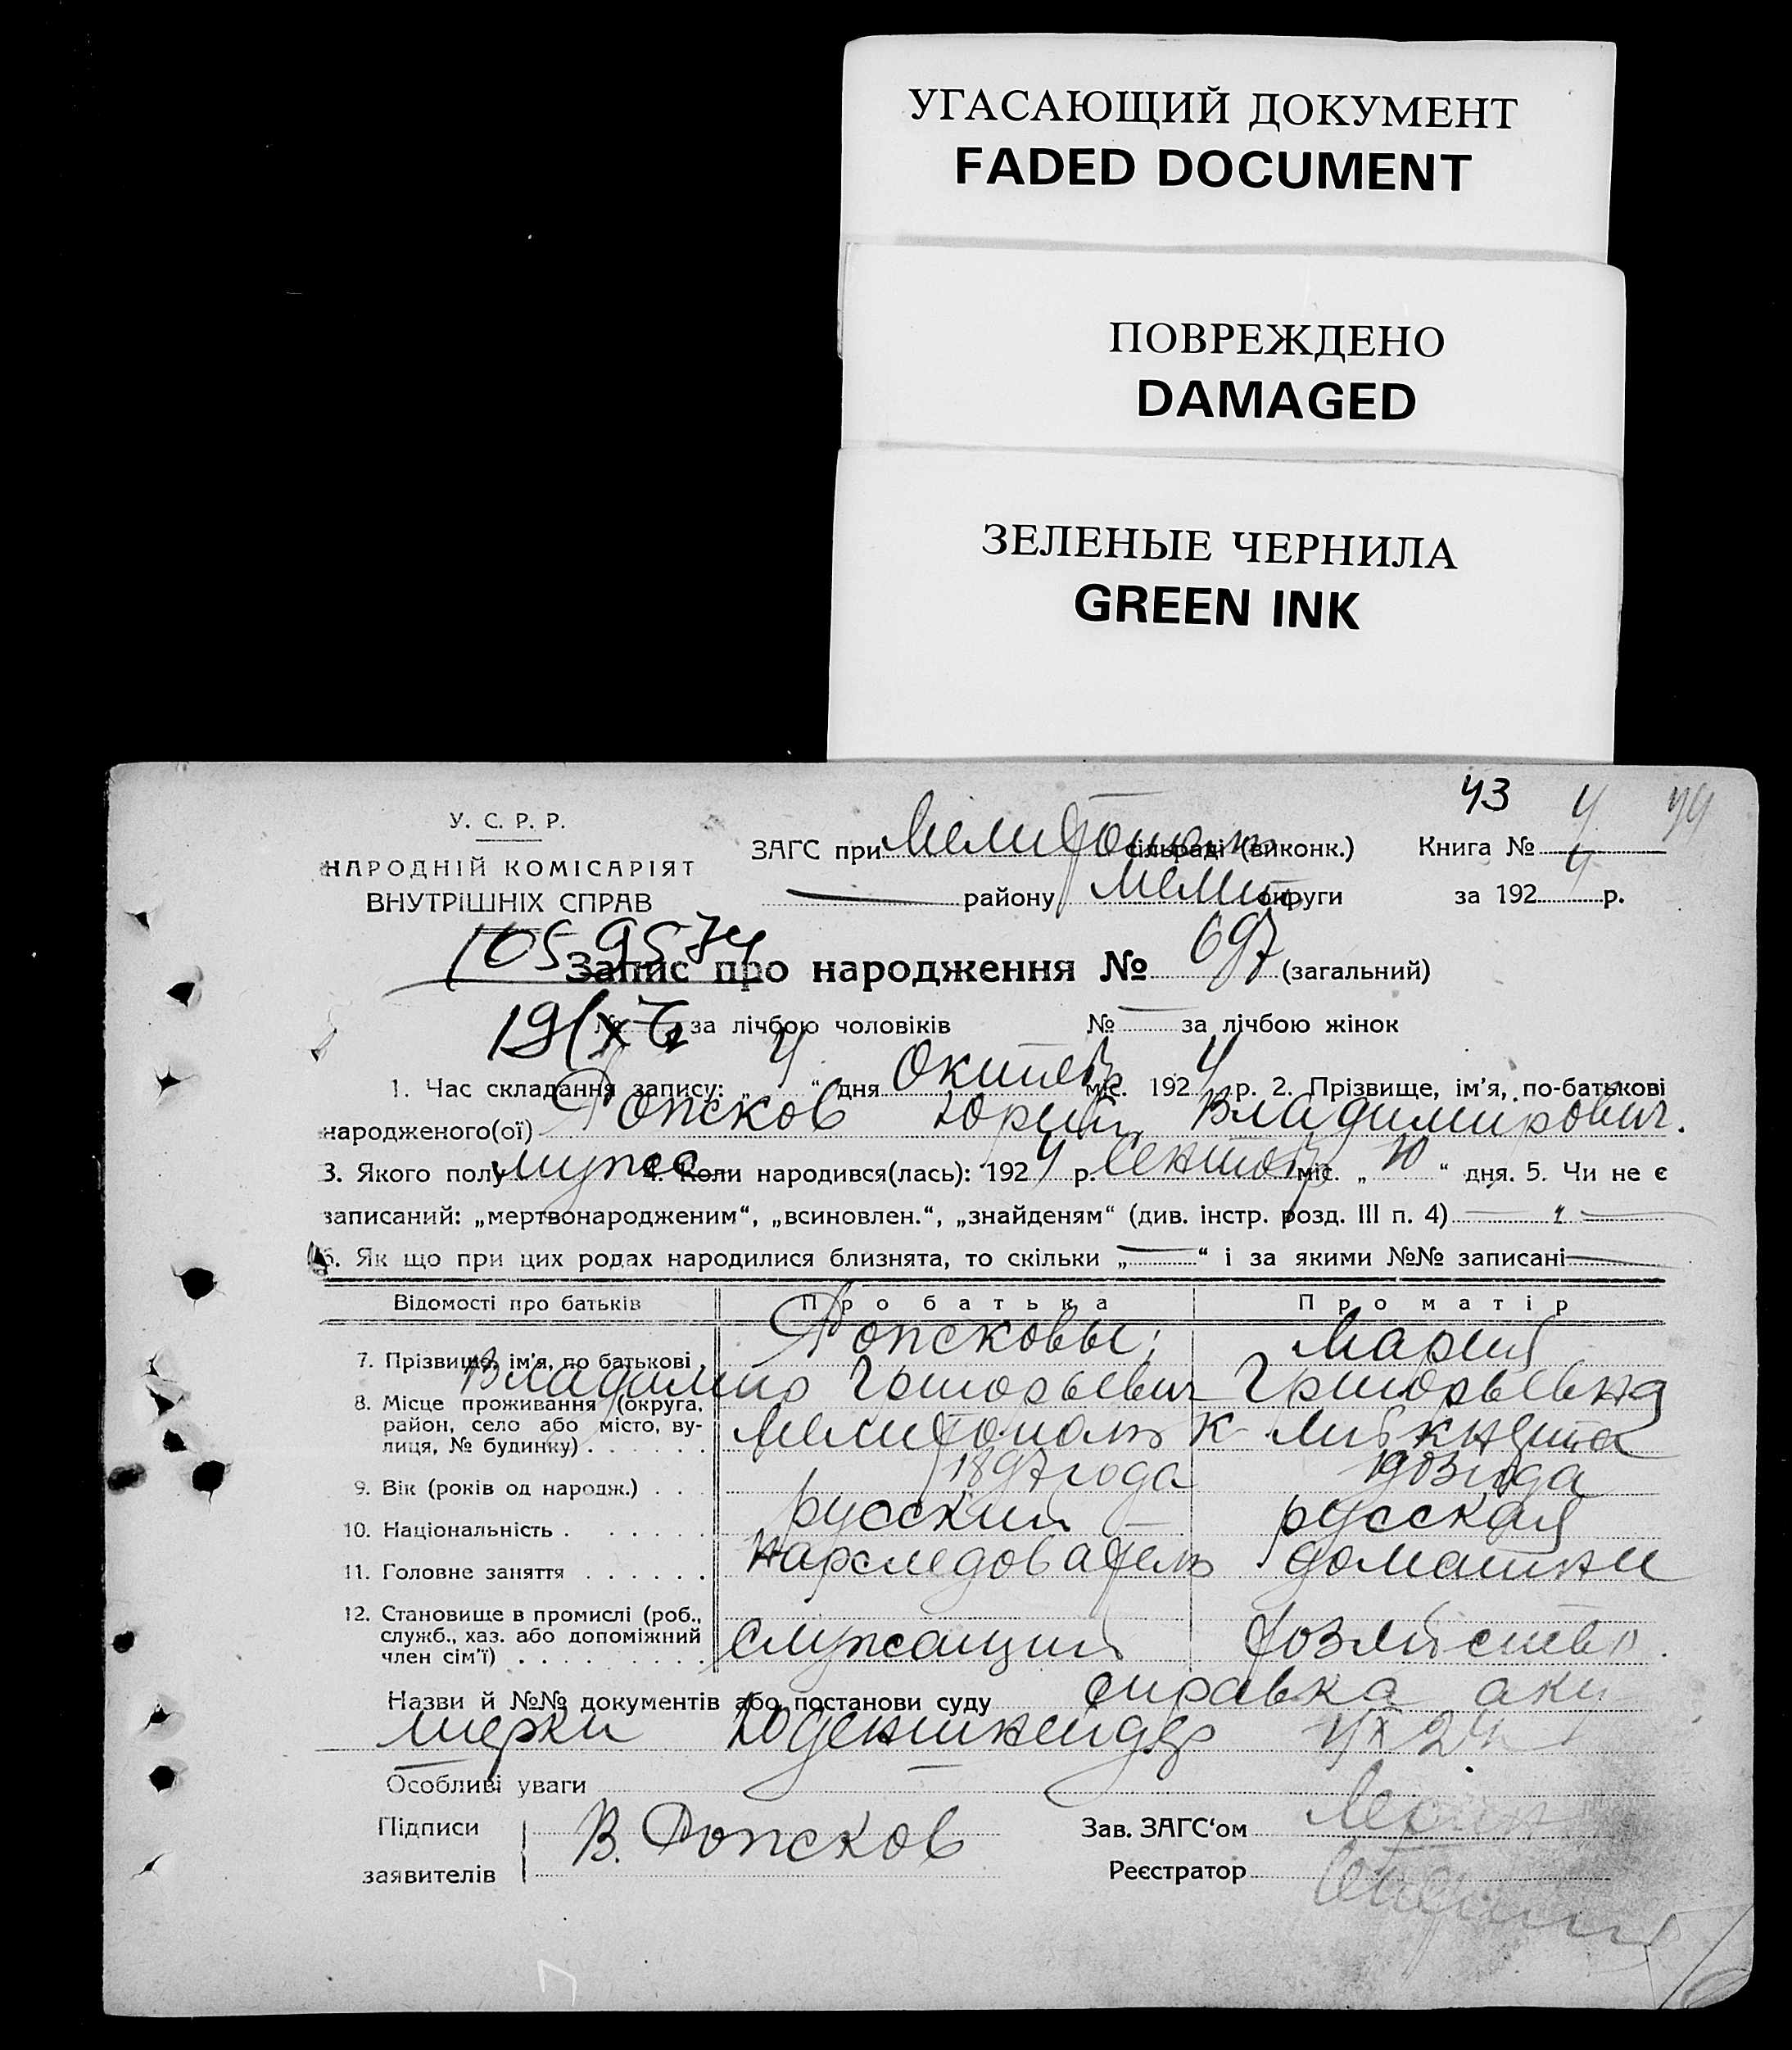 УГАСАЮЩИЙ ДОКУМЕНТ
FADED DOCUMENT
ПОВРЕЖДЕНО
DAMAGED
ЗЕЛЕНЫЕ ЧЕРНИЛА
GREEN INK
43 4 44
У. С. Р. Р.
НАРОДНІЙ КОМІСАРІЯТ
ВНУТРІШНІХ СПРАВ
ЗАГС при Мелитополь сільраді (виконк.) Книга № 4
району Мелит округи за 1924 р.
Запис про народження № 697 (загальний)
№ за лічбою чоловіків № за лічбою жінок
1. Час складання запису: „4“ дня Октяб міс. 1924 р. 2. Прізвище, ім’я, по-батькові
народженого(ої) Юрий Владимирович.
3. Якого полу мужс 4. Коли народився(лась): 1924 р. Сентяб міс. „10“ дня. 5. Чи не є
записаний: „мертвонародженим“, „всиновлен.“, „знайденям“ (див. інстр. розд. III п. 4)
6. Як що при цих родах народилися близнята, то скільки „ “ і за якими №№ записані
Відомості про батьків Про батька Про матір
7. Прізвище, ім’я, по батькові Мария
Владимир Григорьевич Григорьевна
8. Місце проживання (округа,
район, село або місто, ву-
лиця, № будинку) Мелитополь К Либкнехта
9. Вік (років од народж.) 1897 года 1903 года
10. Національність русский русская
11. Головне заняття Нарследователь домашнее
12. Становище в промислі (роб.,
служб., хаз. або допоміжний
член сім’ї) служащий хозяйство
Назви й №№ документів або постанови суду справка аку
шерки
Особливі уваги
Підписи
заявителів В.
Зав. ЗАГС‘ом
Реєстратор